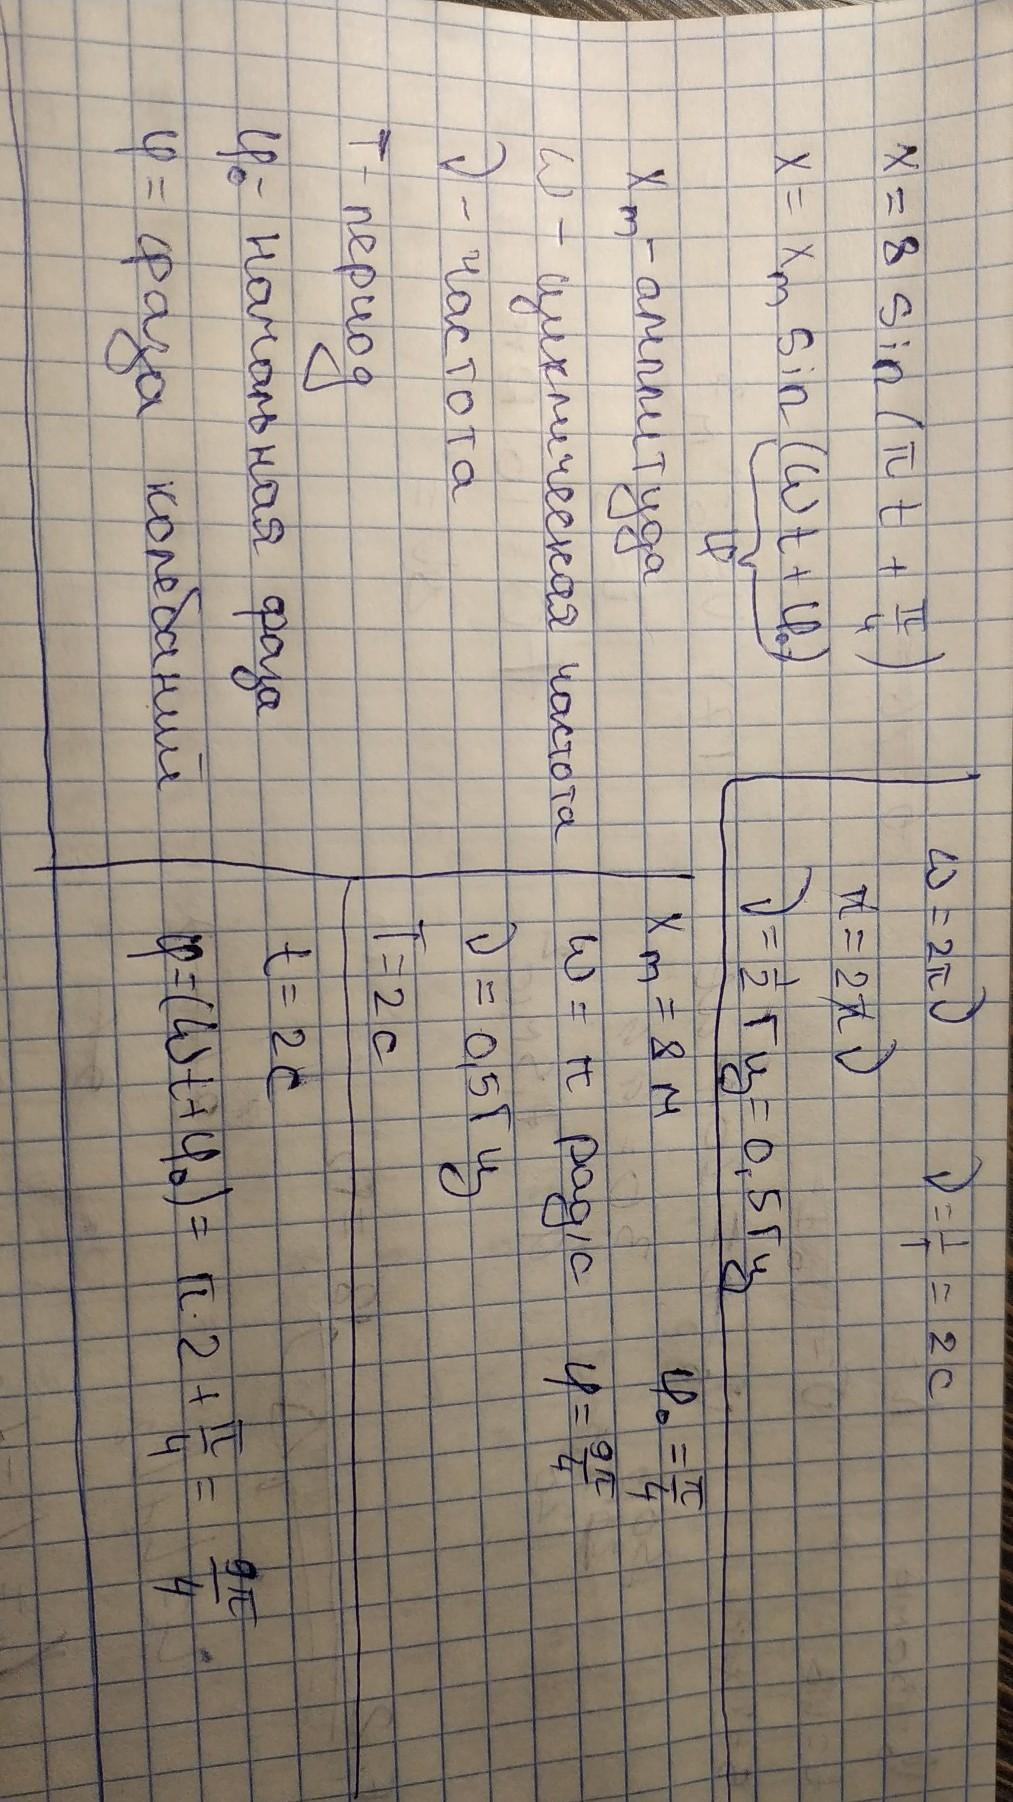 x = 8 sin (π t + π/4)
x = xₘ sin (ωt + φ₀)
φ
xₘ - амплитуда
ω - циклическая частота
ν - частота
T - период
φ₀ - начальная фаза
φ = фаза колебаний
ω = 2πν
ν = 1/T = 2с
π = 2πν
ν = 1/2 Гц = 0,5Гц
xₘ = 8 м
φ₀ = π/4
ω = π рад/с
φ = 9π/4
ν = 0,5Гц
T = 2с
t = 2с
φ = (ωt + φ₀) = π · 2 + π/4 = 9π/4